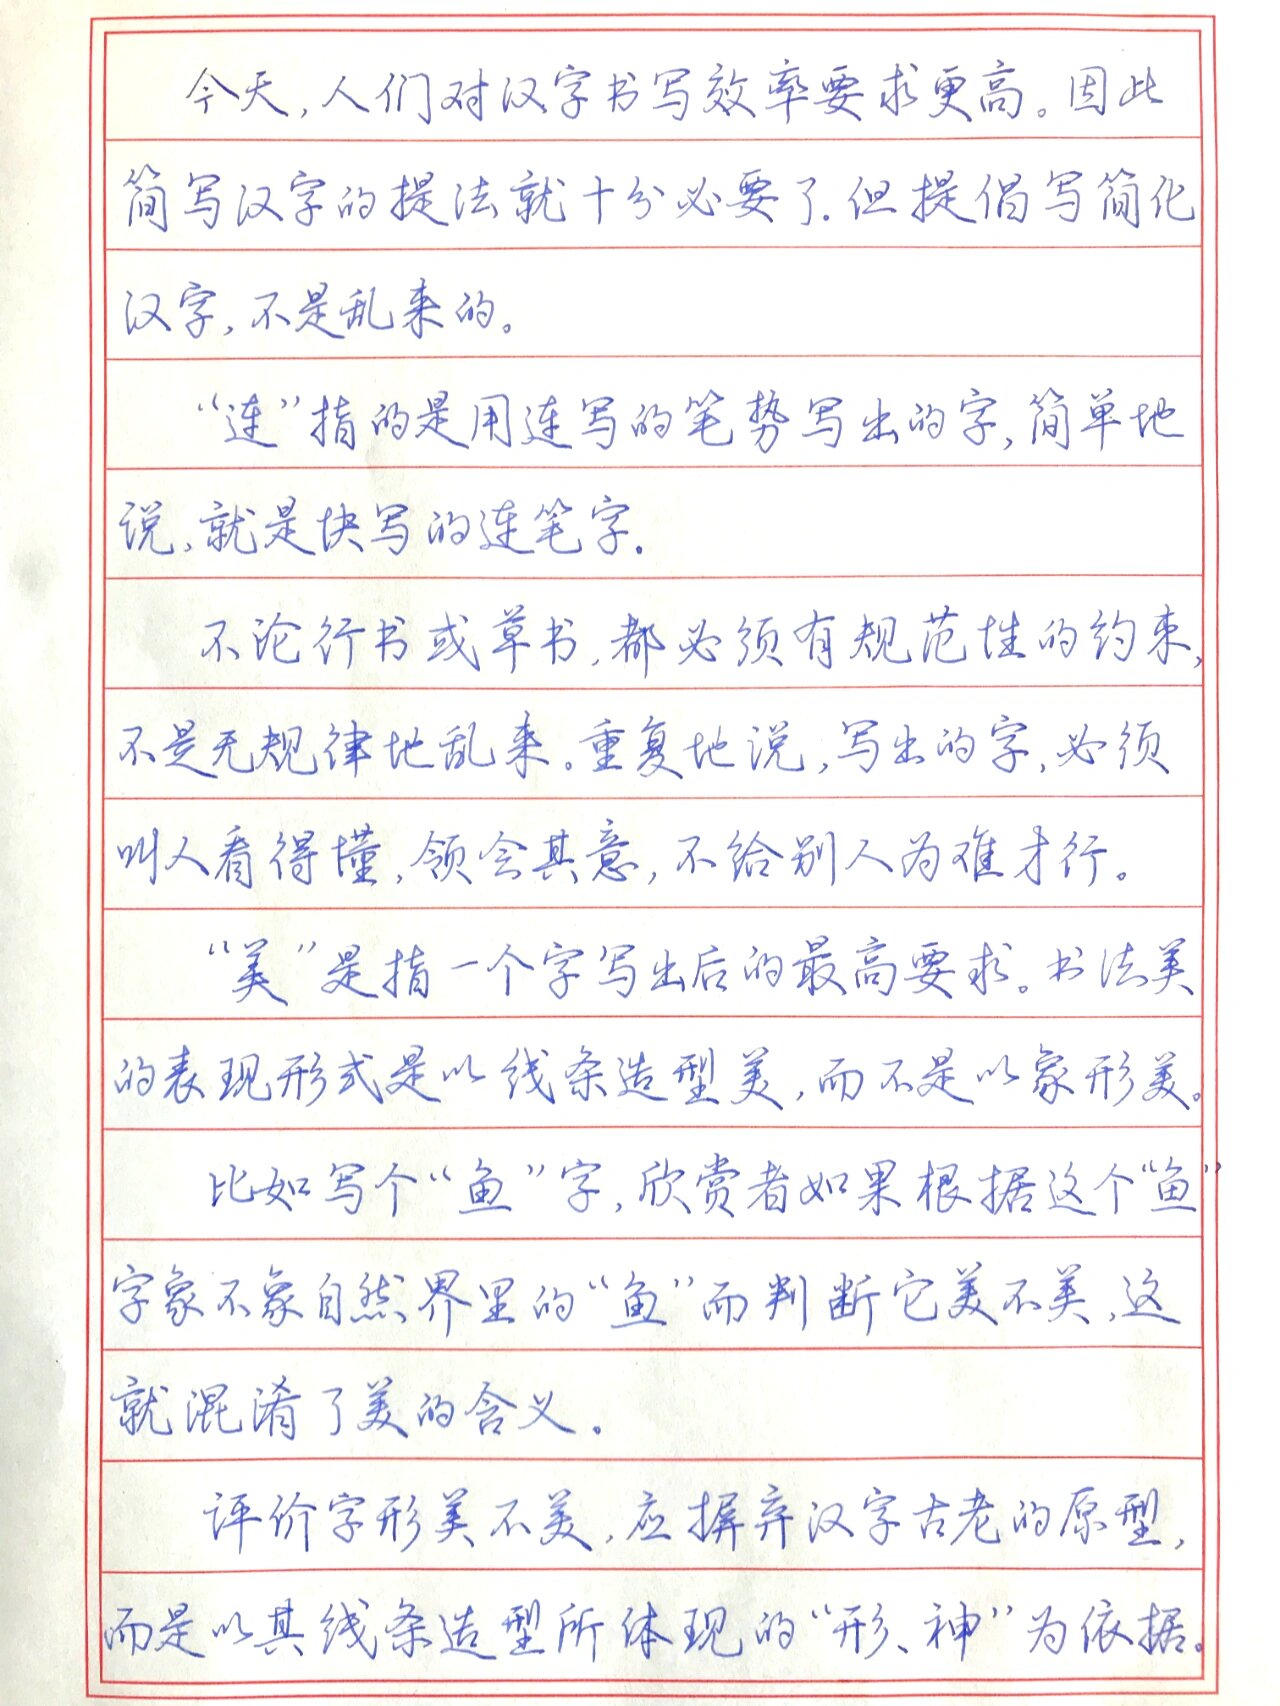 今天,人们对汉字书写效率要求更高。因此
简写汉字的提法就十分必要了.但提倡写简化
汉字,不是乱来的。
“连”指的是用连写的笔势写出的字,简单地
说,就是快写的连笔字.
不论行书或草书,都必须有规范性的约束,
不是无规律地乱来。重复地说,写出的字,必须
叫人看得懂,领会其意,不给别人为难才行。
“美”是指一个字写出后的最高要求。书法美
的表现形式是以线条造型美,而不是以象形美。
比如写个“鱼”字,欣赏者如果根据这个“鱼”
字象不象自然界里的“鱼”而判断它美不美,这
就混淆了美的含义。
评价字形美不美,应摒弃汉字古老的原型,
而是以其线条造型所体现的“形、神”为依据。